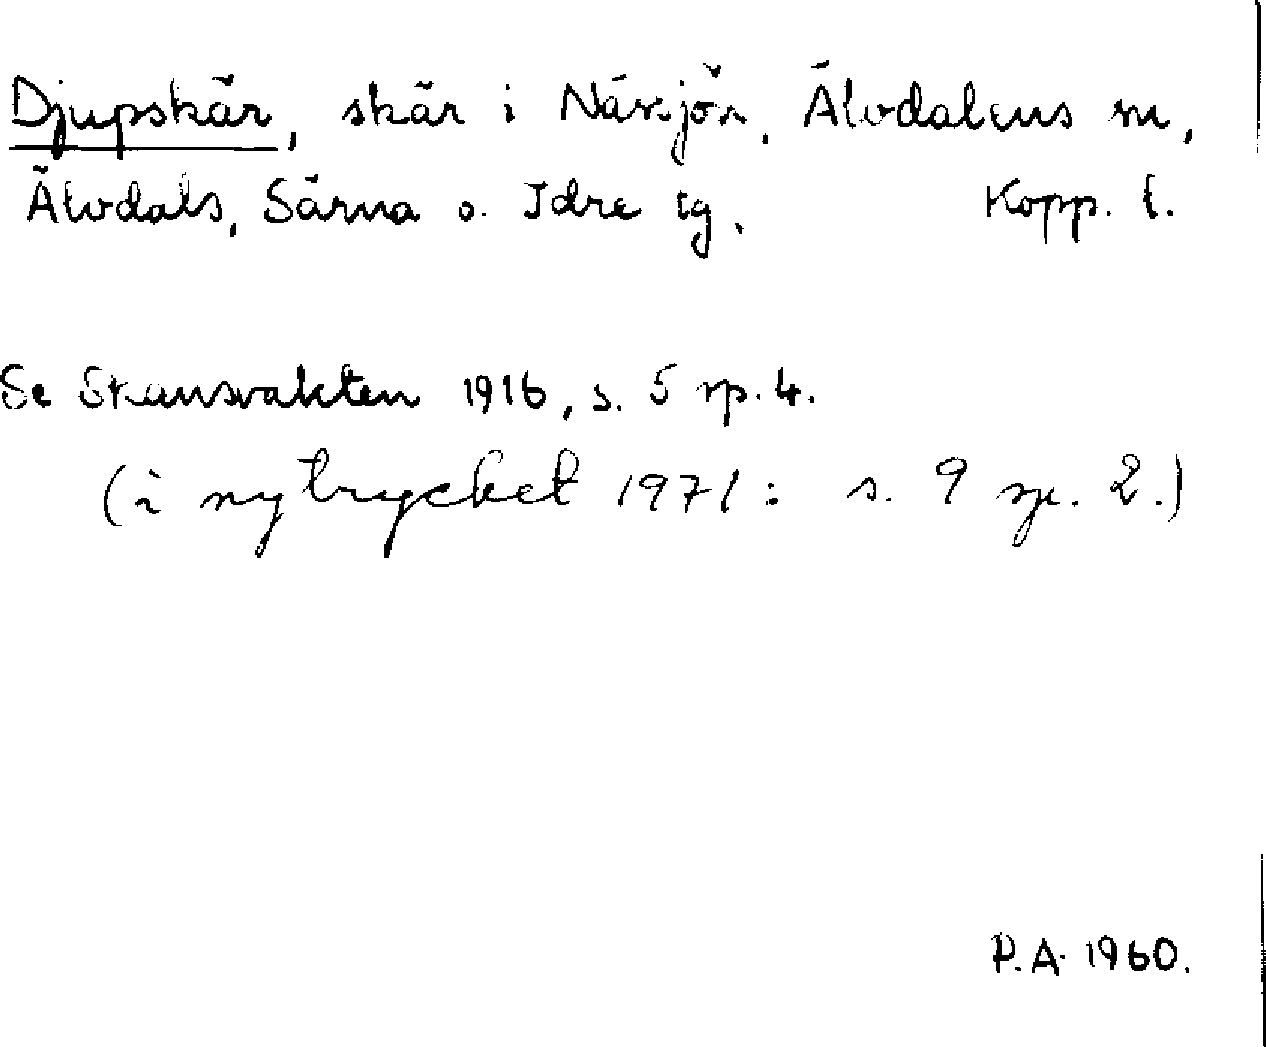 Djupskär, skär i Näsjön, Älvdalens sn,
Älvdals, Särna o. Idre tg. Kopp. l.
Se Skansvakten 1916, s. 5 sp. 4.
(i nytrycket 1971: s. 9 sp. 2.)
P.A. 1960.